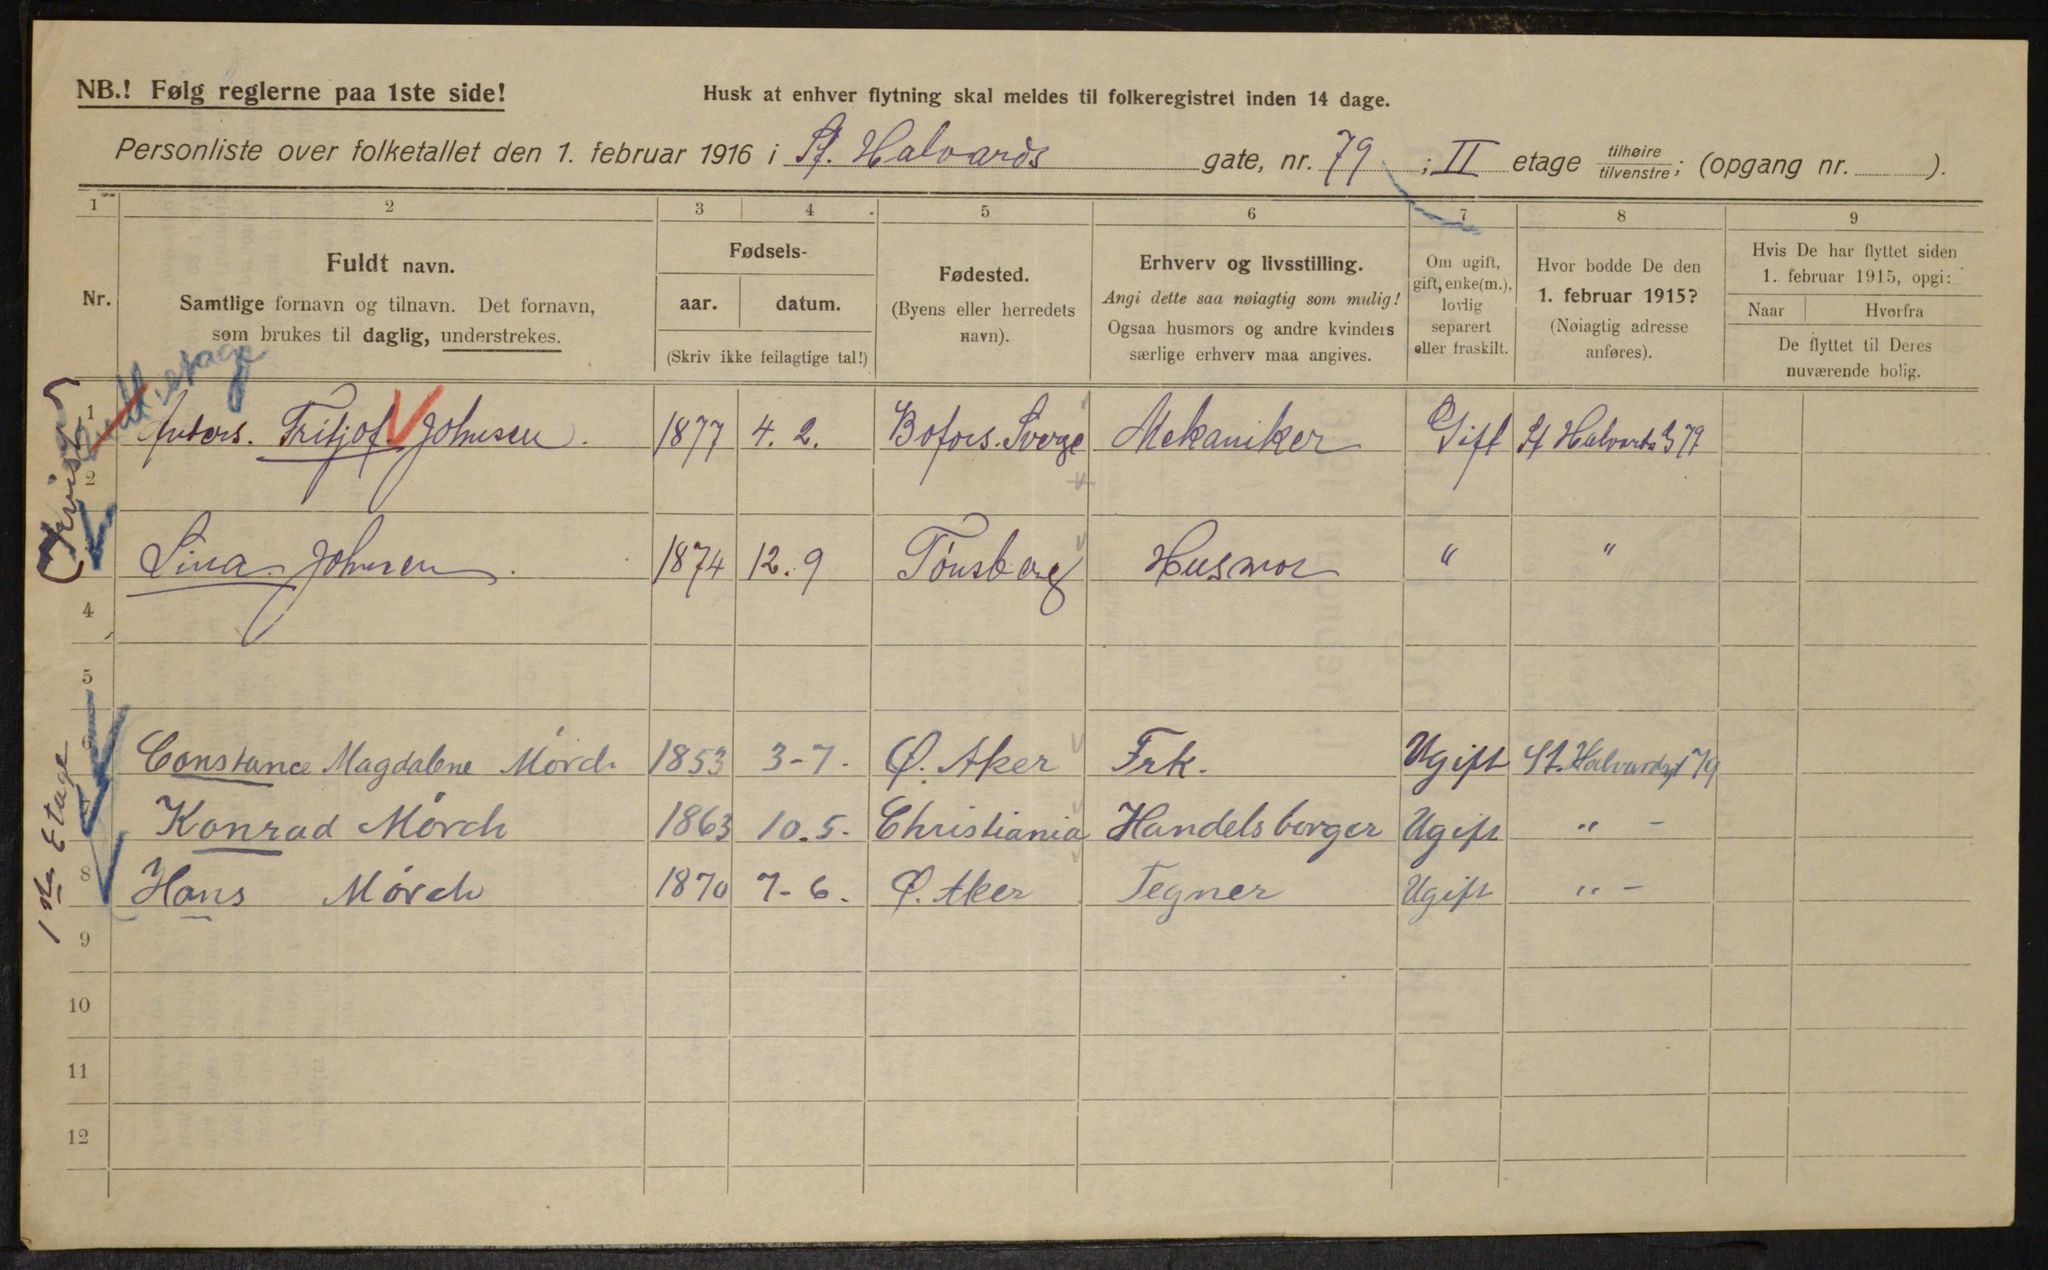 NB.! Følg reglerne paa 1ste side!
Husk at enhver flytning skal meldes til folkeregistret inden 14 dage.
Personliste over folketallet den 1. februar 1916 i St. Halvards gate, nr. 79 ; II etage tilhøire tilvenstre; (opgang nr. ).
1 2 3 4 5 6 7 8 9
Nr.
Fuldt navn.
Samtlige fornavn og tilnavn. Det fornavn,
som brukes til daglig, understrekes.
Fødsels-
aar. datum.
(Skriv ikke feilagtige tal!)
Fødested.
(Byens eller herredets
navn).
Erhverv og livsstilling.
Angi dette saa nøiagtig som mulig!
Ogsaa husmors og andre kvinders
særlige erhverv maa angives.
Om ugift,
gift, enke(m.),
lovlig
separert
eller fraskilt.
Hvor bodde De den
1. februar 1915?
(Nøiagtig adresse
anføres).
Hvis De har flyttet siden
1. februar 1915, opgi:
Naar Hvorfra
De flyttet til Deres
nuværende bolig.
etage
1 Anders. Fritjof. Johnsen. 1877 4. 2. Bofors. Sverge Mekaniker Gift St Halvards G 79
2
Lina Johnsen. 1874 12. 9 Tønsberg Husmor " "
4
5
1ste Etage
6 Constance Magdalene Mörch 1853 3-7. Ø. Aker Frk. Ugift St. Halvardsgt 79
7 Konrad Mörch 1863 10.5. Christiania Handelsborger Ugift " -
8 Hans Mörch 1870 7-6. Ø. Aker Tegner Ugift " -
9
10
11
12